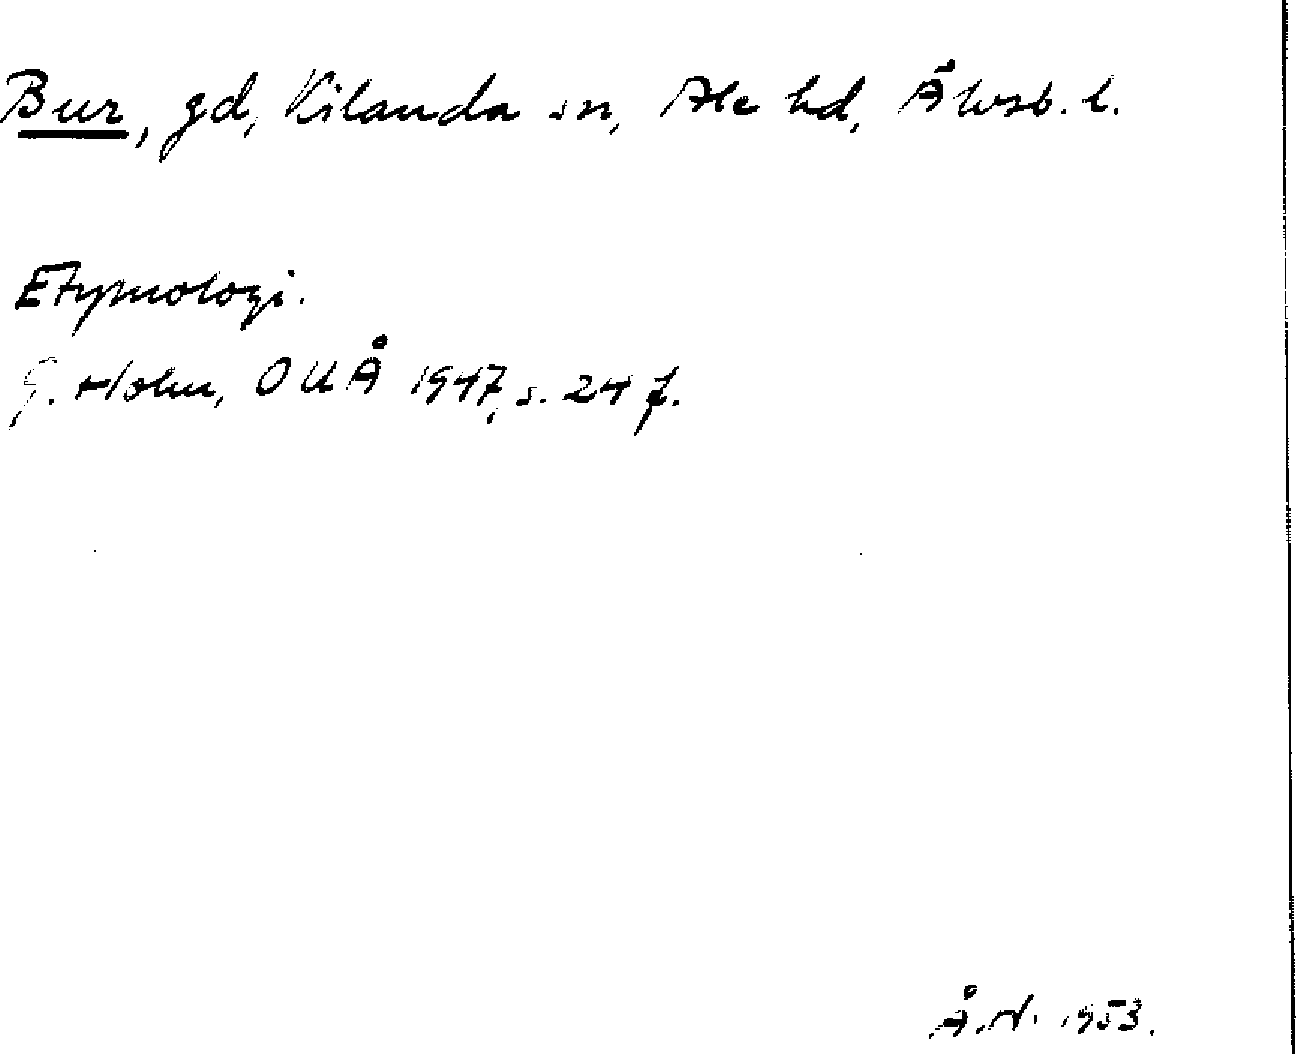 Bur, gd, Kilanda sn, Ale hd, Älvsb. l.
Etymologi.
G. Holm, OUÅ 1947, s. 24 f.
Å.H. 1953.